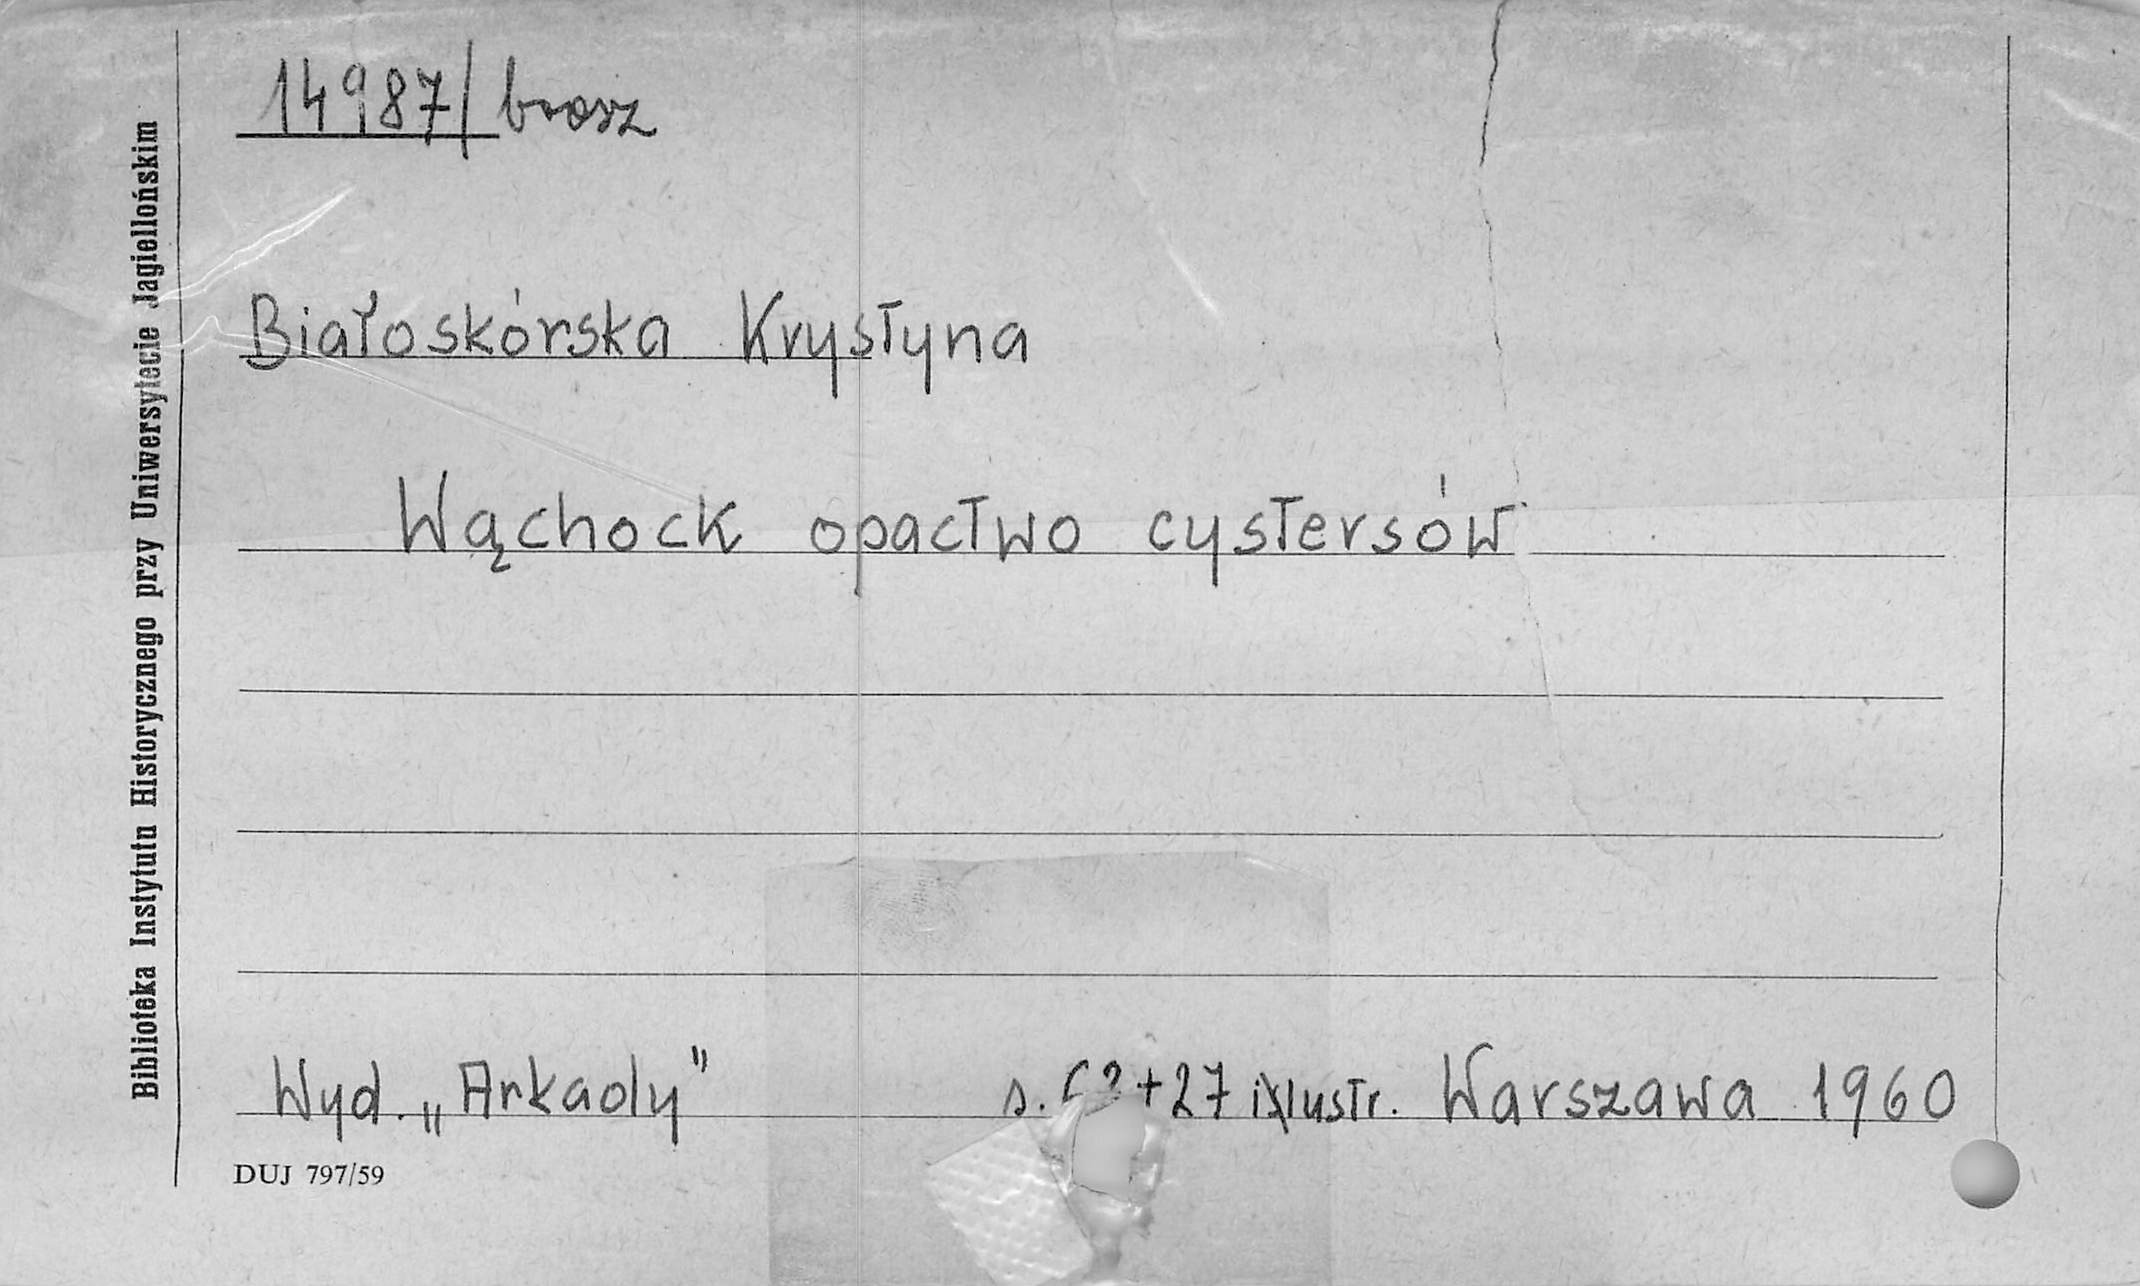 14987/brosz
Białoskórska Krystyna
Wąchock opactwo cystersów
Wyd. „Arkady" s. 63+27 ilustr. Warszawa 1960
DUJ 797/59
Biblioteka Instytutu Historycznego przy Uniwersytecie Jagiellońskim